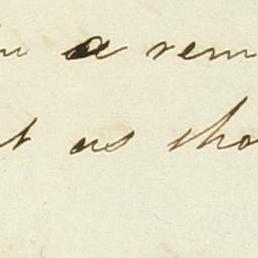 a rem
t as tho